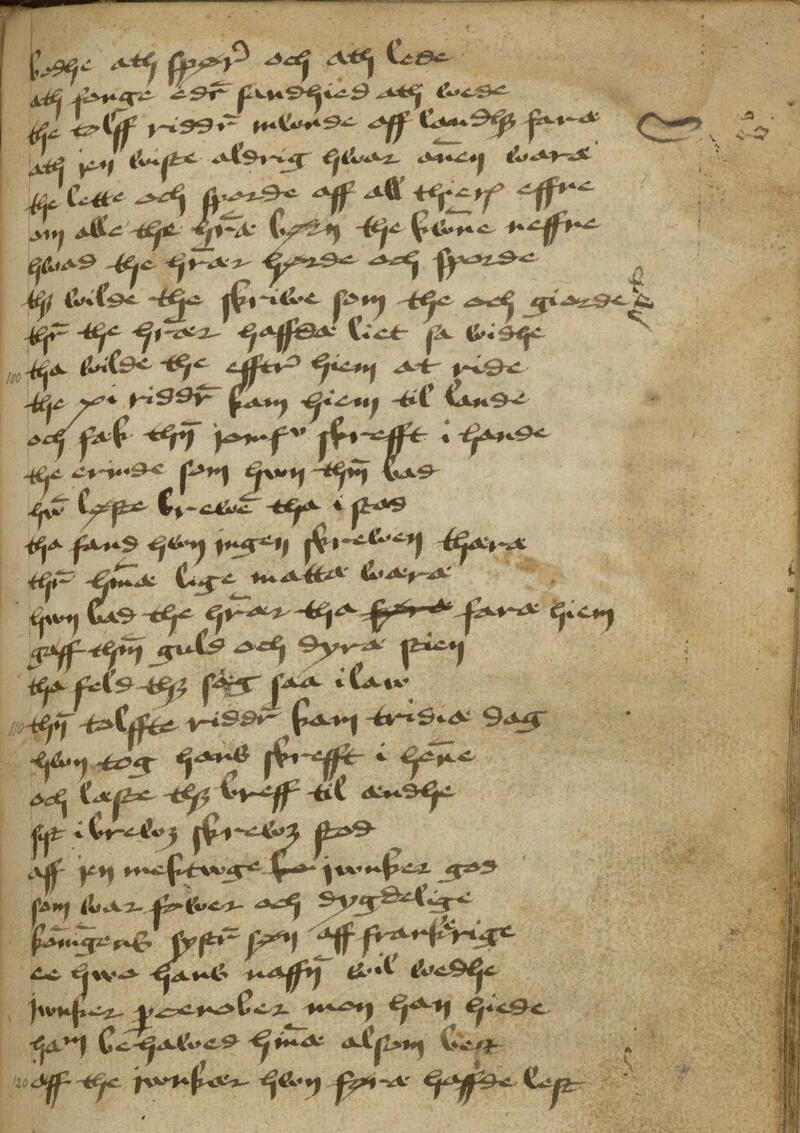 bodhe ath spør̄ och ath lede
ath fange edr̄ sandhied ath wede
the tolff riddr̄ mwnde aff landhꝫ faræ
ath jen wiste aldrig hwar an̄en waræ
the lette och sporde aff all thieris effne
om alle the hr̄æ børn the kwn̄e neffne
hwad the hr̄ær hørde och sporde
thꝫ wilde the skriwe som the och giorde
thr̄ the hr̄ær haffdæ liet sa widhe
100 tha wilde the efftr̄ hiem at ride
the xi riddr̄ kam hiem til lande
och fæk thn̄ jomfrv skrefft i hande
the erinde som hwn thm̄ bad
hw̄ løste brewē tha i stad
tha fand hwn ingen skrewen thæræ
thr̄ hn̄æ lige mattæ wæræ
hwn bad the hr̄ær tha føræ faræ hiem
gaff thm̄ guld och dyræ stien
tha feld thꝫ sæg saa i law
110 thn̄ tolffte riddr̄ kam tridiæ dag
hwn tog hans skrefft i hen̄e
och læste thꝫ breff til ændhe
sist i brewꝫ skrewꝫ stod
aff jen mektwge ko jwnker god
som war fower och dygdelige
kōnīgens systr̄ søn aff frankerige
ee hwo hans naffn̄ wil wedhe
jwnker ꝑcenober mon han hiede
ham behawed hn̄æ alsom best
120 aff the jwnkær hwn føræ haffde lest